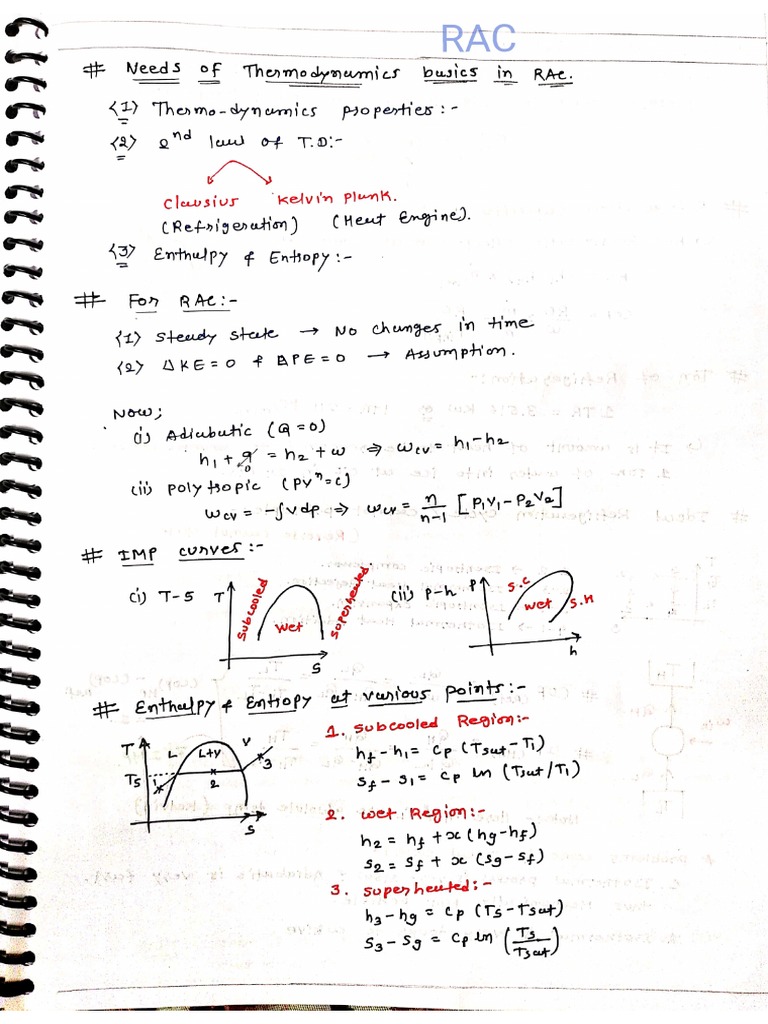 RAC
# Needs of Thermodynamics basics in RAC.
<1> Thermo-dynamics properties:-
<2> 2nd law of T.D:-
Clausius Kelvin plunk.
(Refrigeration) (Heat Engine).
<3> Enthalpy & Entropy:-
# For RAC:-
<1> Steady state → No changes in time
<2> ΔKE=0 & ΔPE=0 → Assumption.
Now;
(i) Adiabatic (Q=0)
h₁ + q⁰ = h₂ + w ⇒ Wcv = h₁-h₂
(ii) Polytropic (PVⁿ=C)
Wcv = -∫vdp ⇒ Wcv = n/n-1 [P₁V₁-P₂V₂]
# IMP curves:-
(i) T-S T Subcooled wet Superheated S
(ii) P-h P S.C wet S.H h
# Enthalpy & Entropy at various points:-
T L L+V V Ts 1 2 3 S
1. Subcooled Region:-
hf - h₁ = Cp (Tsat - T₁)
Sf - S₁ = Cp ln (Tsat/T₁)
2. Wet Region:-
h₂ = hf + x(hg-hf)
S₂ = Sf + x (Sg-Sf)
3. Superheated:-
h₃ - hg = Cp (Ts-Tsat)
S₃ - Sg = Cp ln (Ts/Tsat)